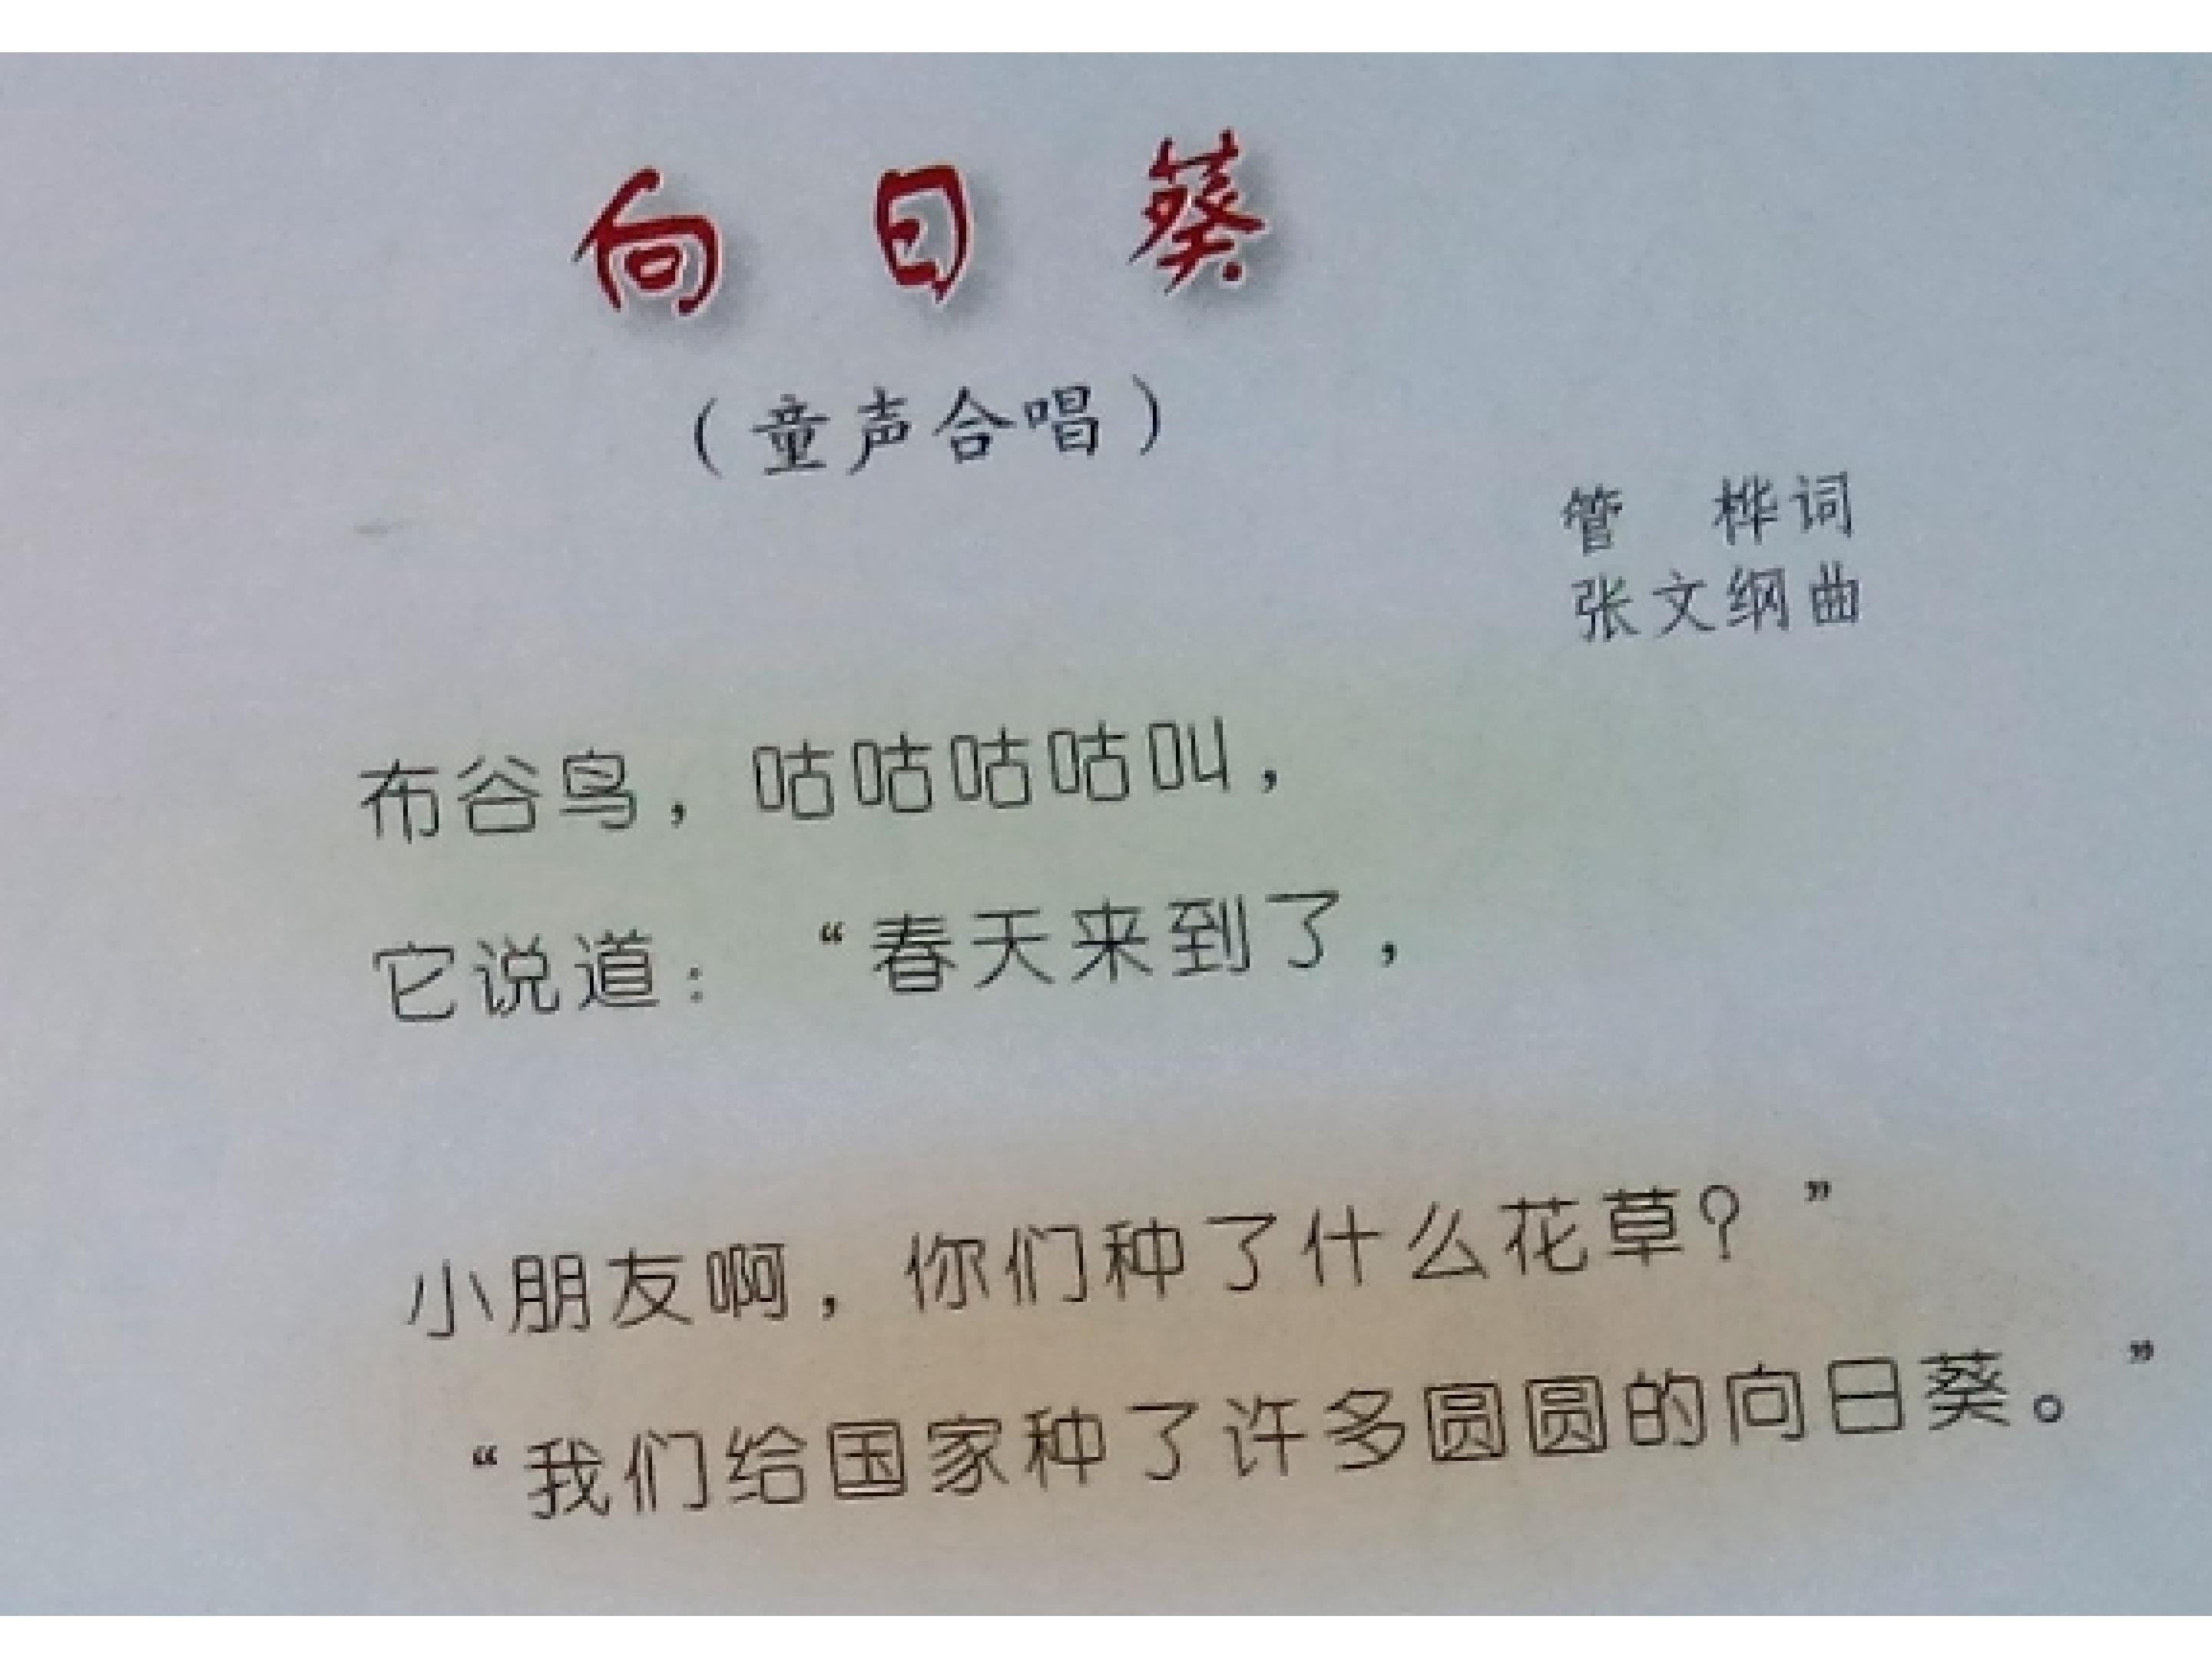 向日葵
（童声合唱）
管 桦词
张文纲曲
布谷鸟，咕咕咕咕叫，
它说道：“春天来到了，
小朋友啊，你们种了什么花草？”
“我们给国家种了许多圆圆的向日葵。”